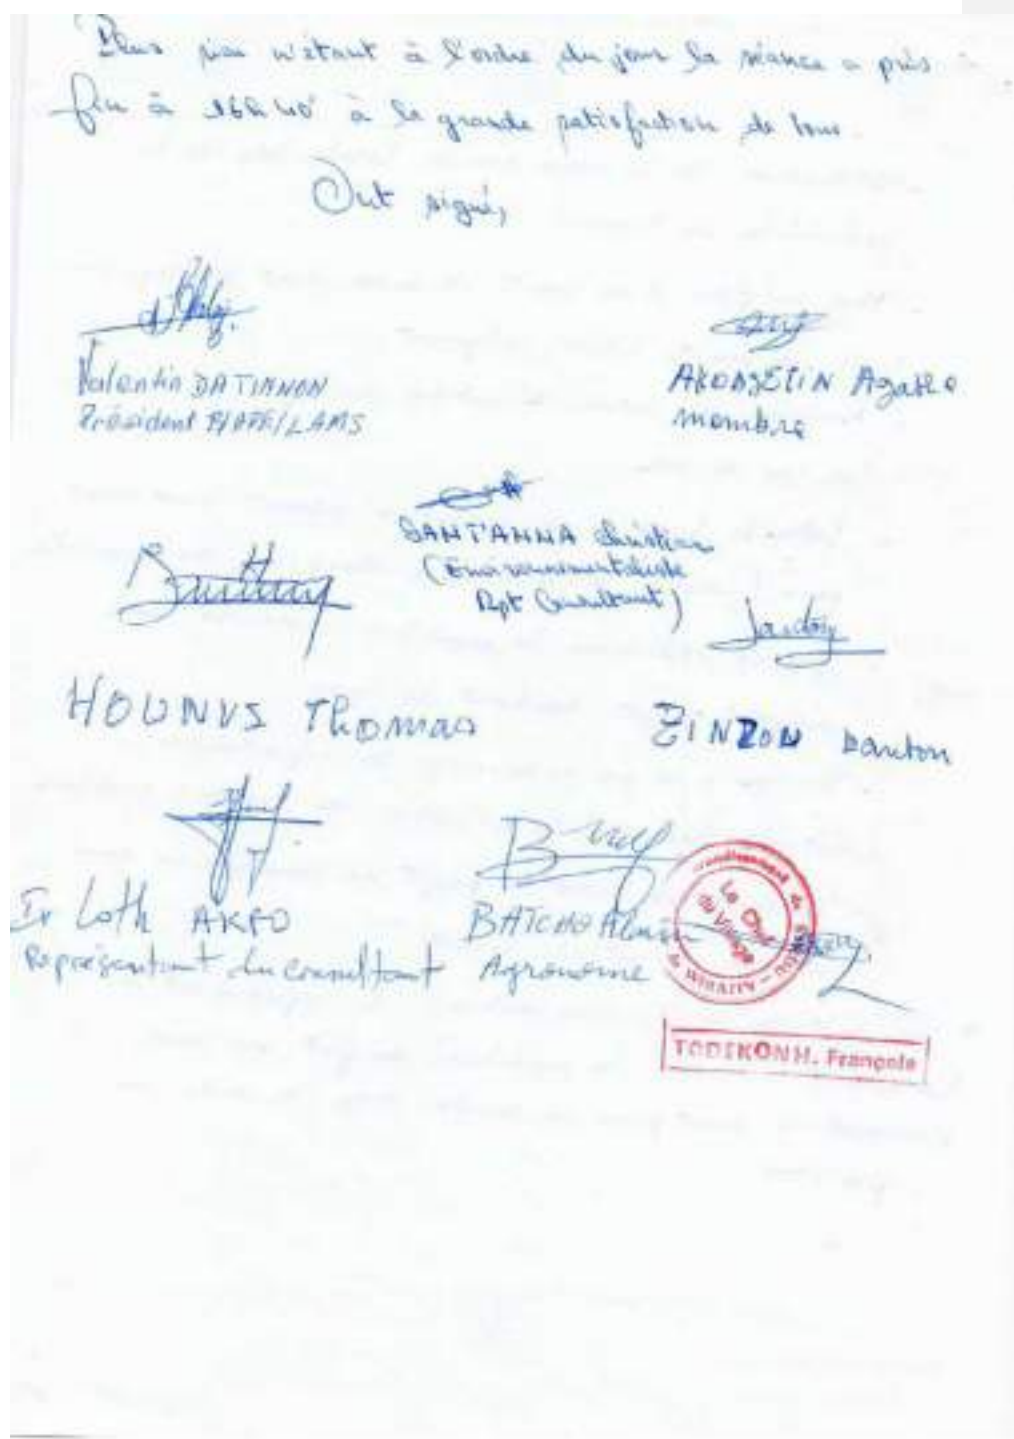 Plus rien n'étant à l'ordre du jour la séance a pris
fin à 16h40' à la grande satisfaction de tous
Ont signé,
Valentin DATINNON
Président
AKODJETIN Agathe
membre
SANT'ANNA Christian
(Environnementaliste
Rpt Consultant)
HOUNVS Thomas
ZINZON Danton
Ir Loth AKPO
Représentant du consultant
BATCHO Alain
Agronome
Le Chef
du Village
TODEKON H. François